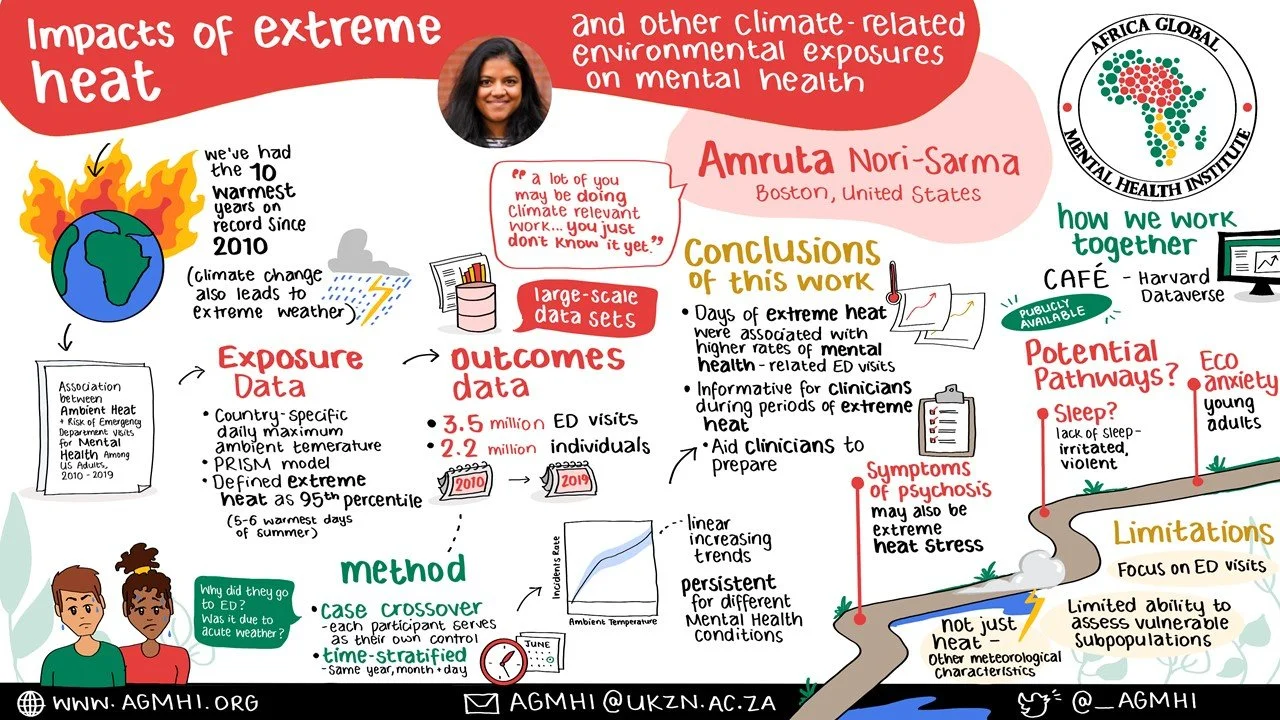 Impacts of extreme
heat
and other climate-related
environmental exposures
on mental health
AFRICA GLOBAL
MENTAL HEALTH INSTITUTE
Amruta Nori-Sarma
Boston, United States
we've had
the 10
warmest
years on
record since
2010
(climate change
also leads to
extreme weather)
"a lot of you
may be doing
climate relevant
work... you just
don't know it yet."
large-scale
data sets
Association
between
Ambient Heat
+ Risk of Emergency
Department visits
for Mental
Health Among
US Adults,
2010-2019
Exposure
Data
• Country-specific
daily maximum
ambient temerature
• PRISM model
• Defined extreme
heat as 95th percentile
(5-6 warmest days
of summer)
outcomes
data
• 3.5 million ED visits
• 2.2 million individuals
2010
2019
Why did they go
to ED?
Was it due to
acute weather?
method
• case crossover
- each participant serves
as their own control
• time-stratified
- same year, month + day
JUNE
Incidents Rate
Ambient Temperature
linear
increasing
trends
persistent
for different
Mental Health
conditions
Conclusions
of this work
• Days of extreme heat
were associated with
higher rates of mental
health-related ED visits
• Informative for clinicians
during periods of extreme
heat
• Aid clinicians to
prepare
how we work
together
CAFÉ - Harvard
Dataverse
PUBLICLY
AVAILABLE
Potential
Pathways?
Symptoms
of psychosis
may also be
extreme
heat stress
Sleep?
lack of sleep-
irritated,
violent
Eco
anxiety
young
adults
not just
heat -
Other meteorological
characteristics
Limitations
Focus on ED visits
Limited ability to
assess vulnerable
subpopulations
WWW.AGMHI.ORG
AGMHI@UKZN.AC.ZA
@_AGMHI